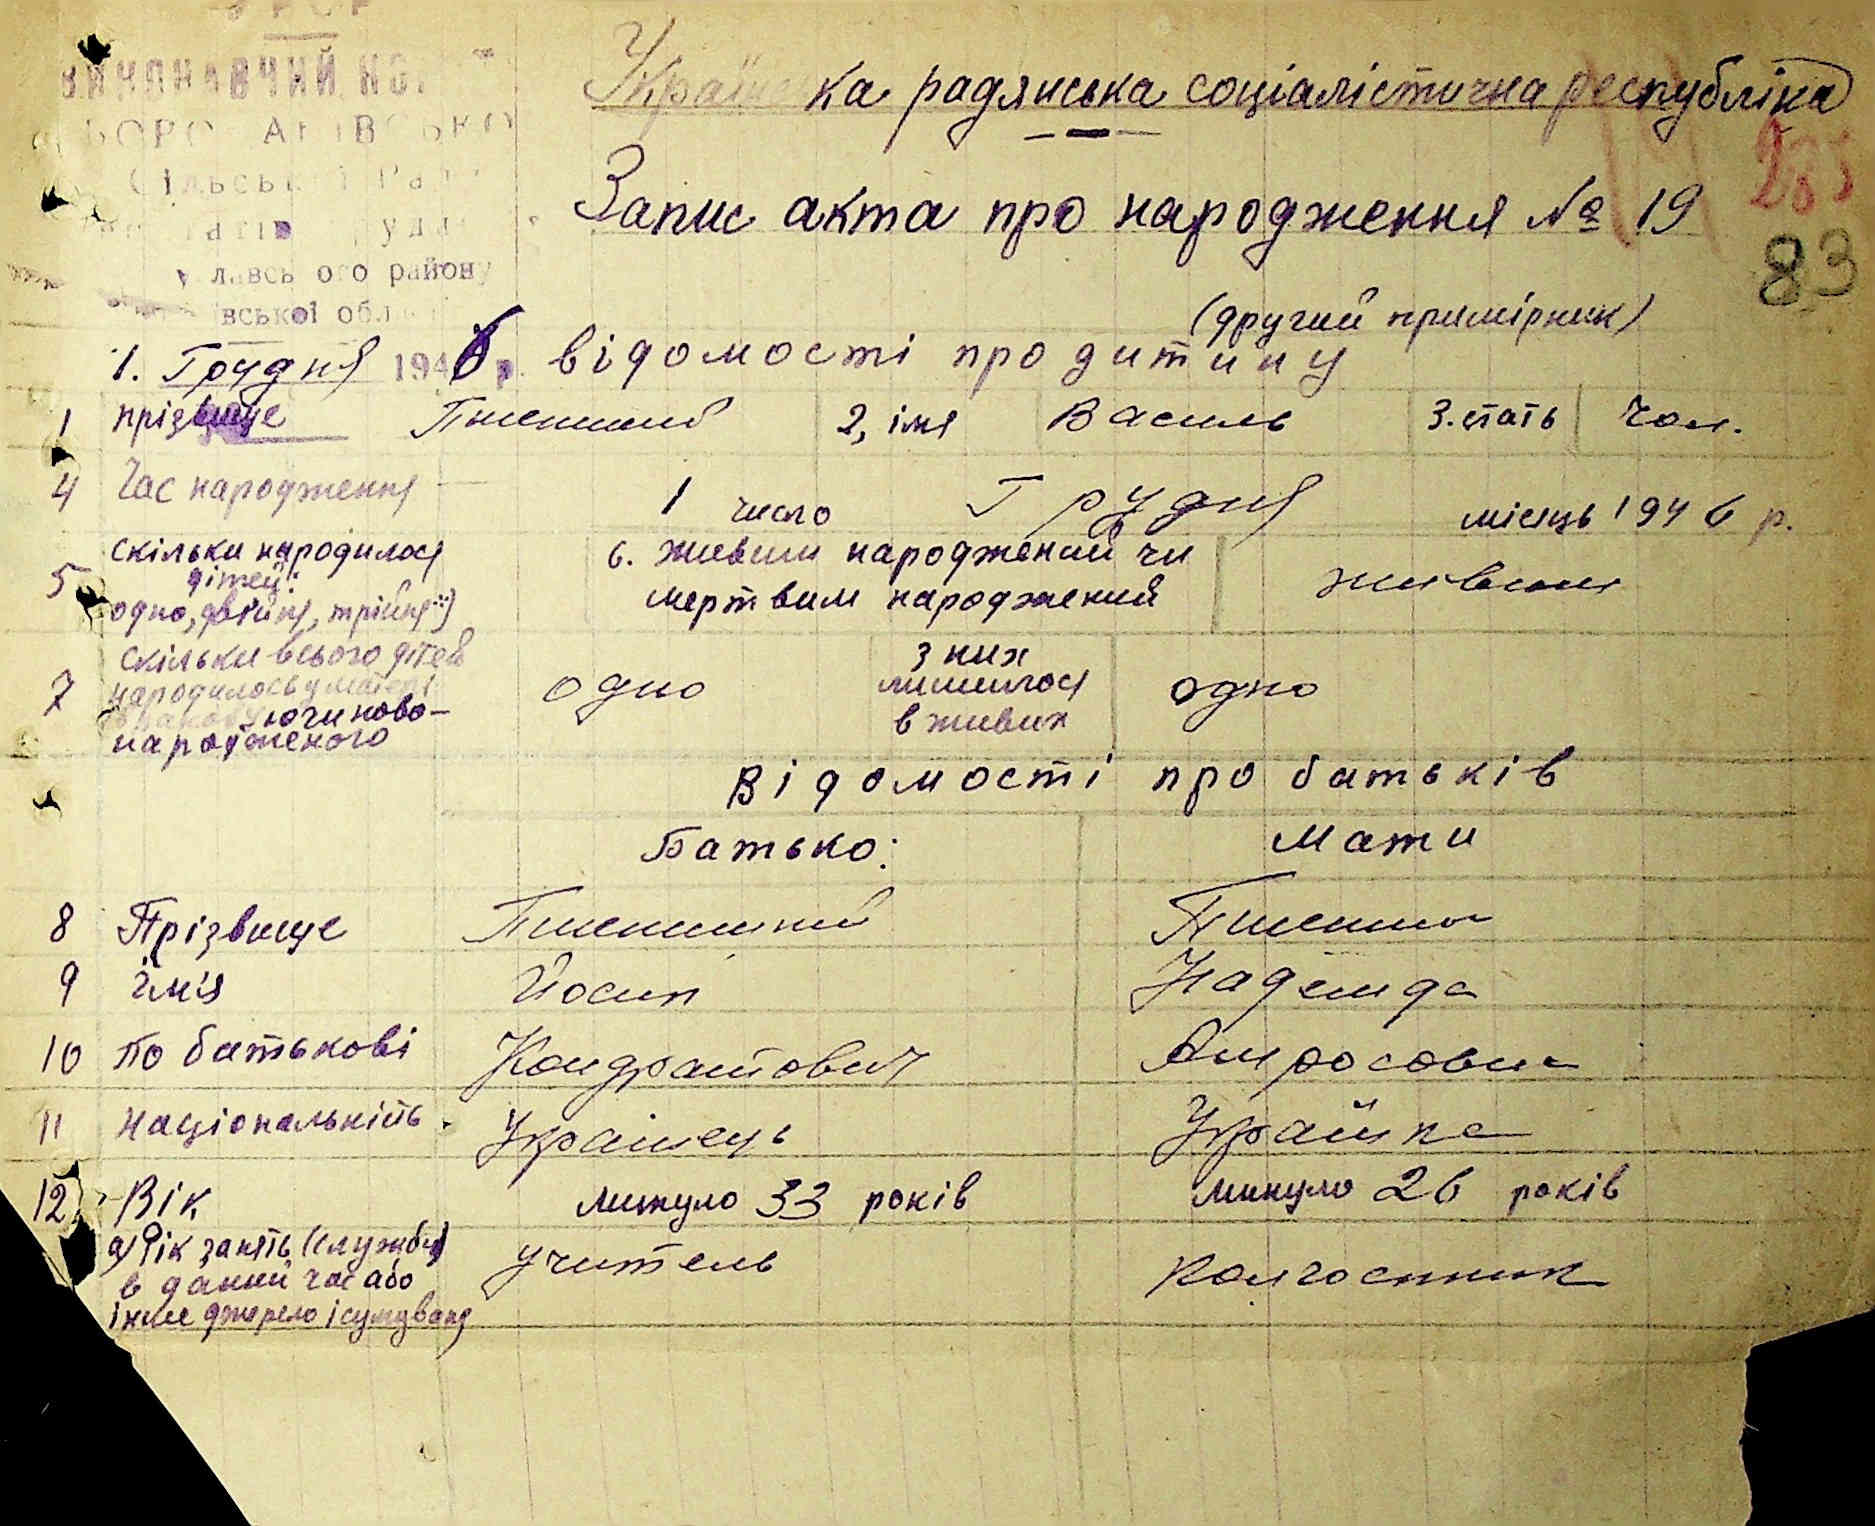 УРСР
ВИКОНАВЧИЙ
Українська радянська соціалістична республіка
Сільської Ради
Запис акта про народження № 19
285
83
району
(другий примірник)
1. Грудня 1946 р. відомості про дитину
1 прізвище Пшеничний 2, імя Василь 3. стать Чол.
4 Час народження 1 число Грудня місяць 1946 р.
5 скільки народилося дітей: одно, двійня, трійня)
6. живим народжений чи мертвим народжений живим
7 скільки всього дітей народилось у матері новонародженого одно
з них лишилося в живих одно
Відомості про батьків
Батько: Мати
8 Прізвище Пшеничний Пшенична
9 Їм'я Йосип Надежда
10 По батькові Кондратович
11 Національність Українець Українка
12 Вік минуло 33 років минуло 26 років
а) Рік занять (служби) в даний час або інше джерело існування учитель колгоспник